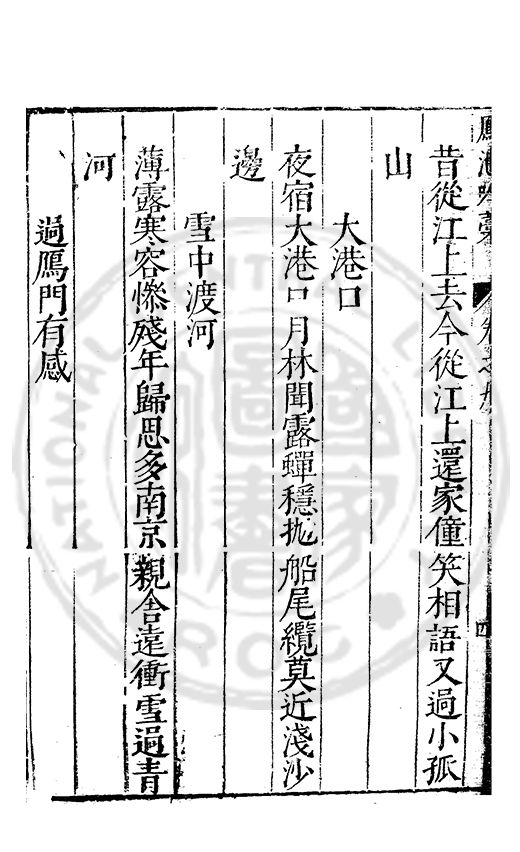 昔從江上去今從江上還家僮笑相語又過小孤
山
大港口
夜宿大港口月林聞露蟬穩抛船尾纜莫近淺沙
邊
雪中渡河
薄露寒容慘殘年歸思多南京親舍遠衝雪過青
河
過鴈門有感